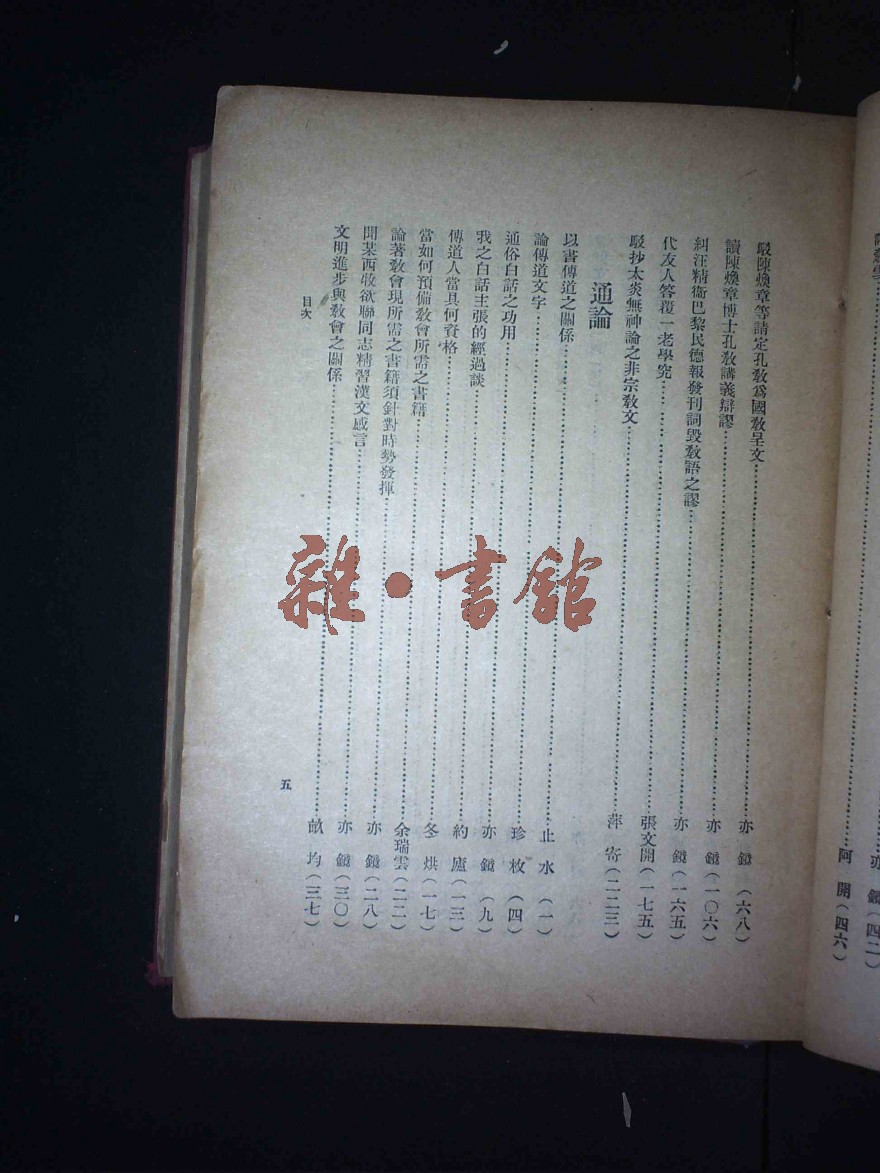 亦鏡(四二)
阿開(四六)
駁陳煥章等請定孔敎爲國敎呈文……亦鏡(六八)
讀陳煥章博士孔敎講義辯謬……亦鏡(一〇六)
糾汪精衞巴黎民德報發刊詞毀敎語之謬……亦鏡(一六五)
代友人答覆一老學究……張文開(一七五)
駁抄太炎無神論之非宗敎文……萍寄(二二三)
通論
以書傳道之關係……止水(一)
論傳道文字……珍枚(四)
通俗白話之功用……亦鏡(九)
我之白話主張的經過談……約廬(一三)
傳道人當具何資格……冬烘(一七)
當如何預備敎會所需之書籍……余瑞雲(二二)
論著敎會現所需之書籍須針對時勢發揮……亦鏡(二八)
聞某西牧欲聯同志精習漢文感言……亦鏡(三〇)
文明進步與敎會之關係……畝均(三七)
目次
五
雜·書館